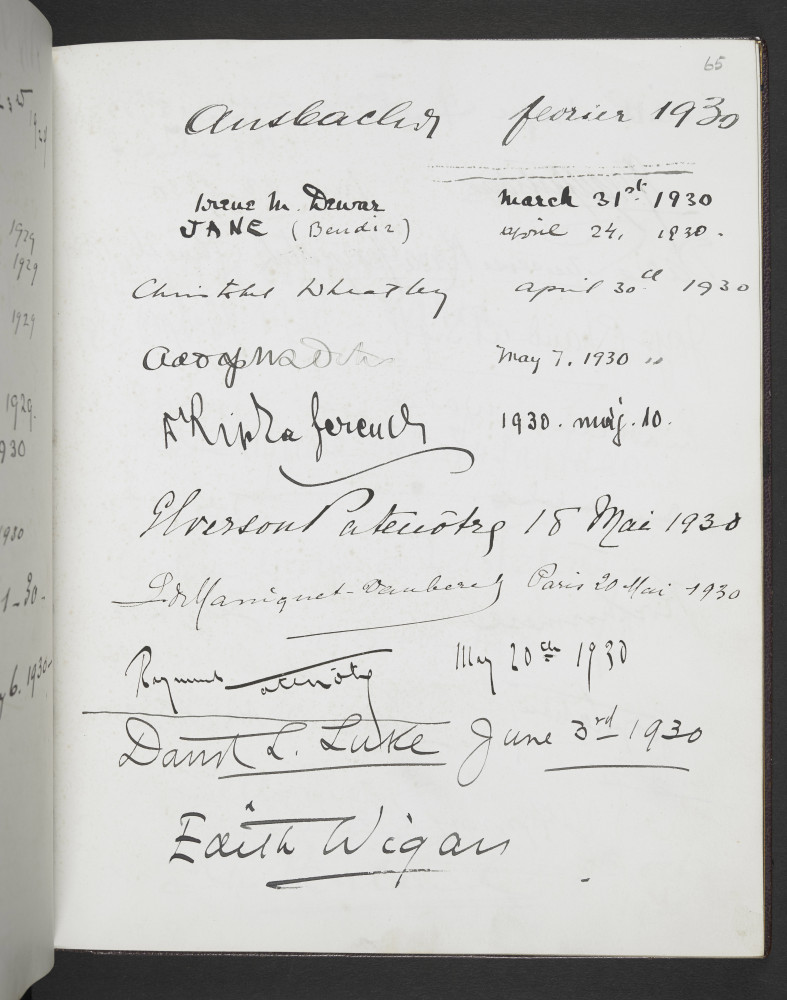 65
Ansbacher février 1930
Irene M. Dewar March 31st 1930
JANE (Bendir) april 24, 1930.
Christobel Wheatley april 30th 1930
May 7. 1930 "
Ripka Ferenc 1930. máj. 10.
Elverson Patenôtre 18 Mai 1930
Paris 20 Mai 1930
Raymond Patenôtre May 20th 1930
David L. Luke June 3rd 1930
Edith Wigan
1929
1929
1929
1929.
930
1930
1-30-
6. 1930-